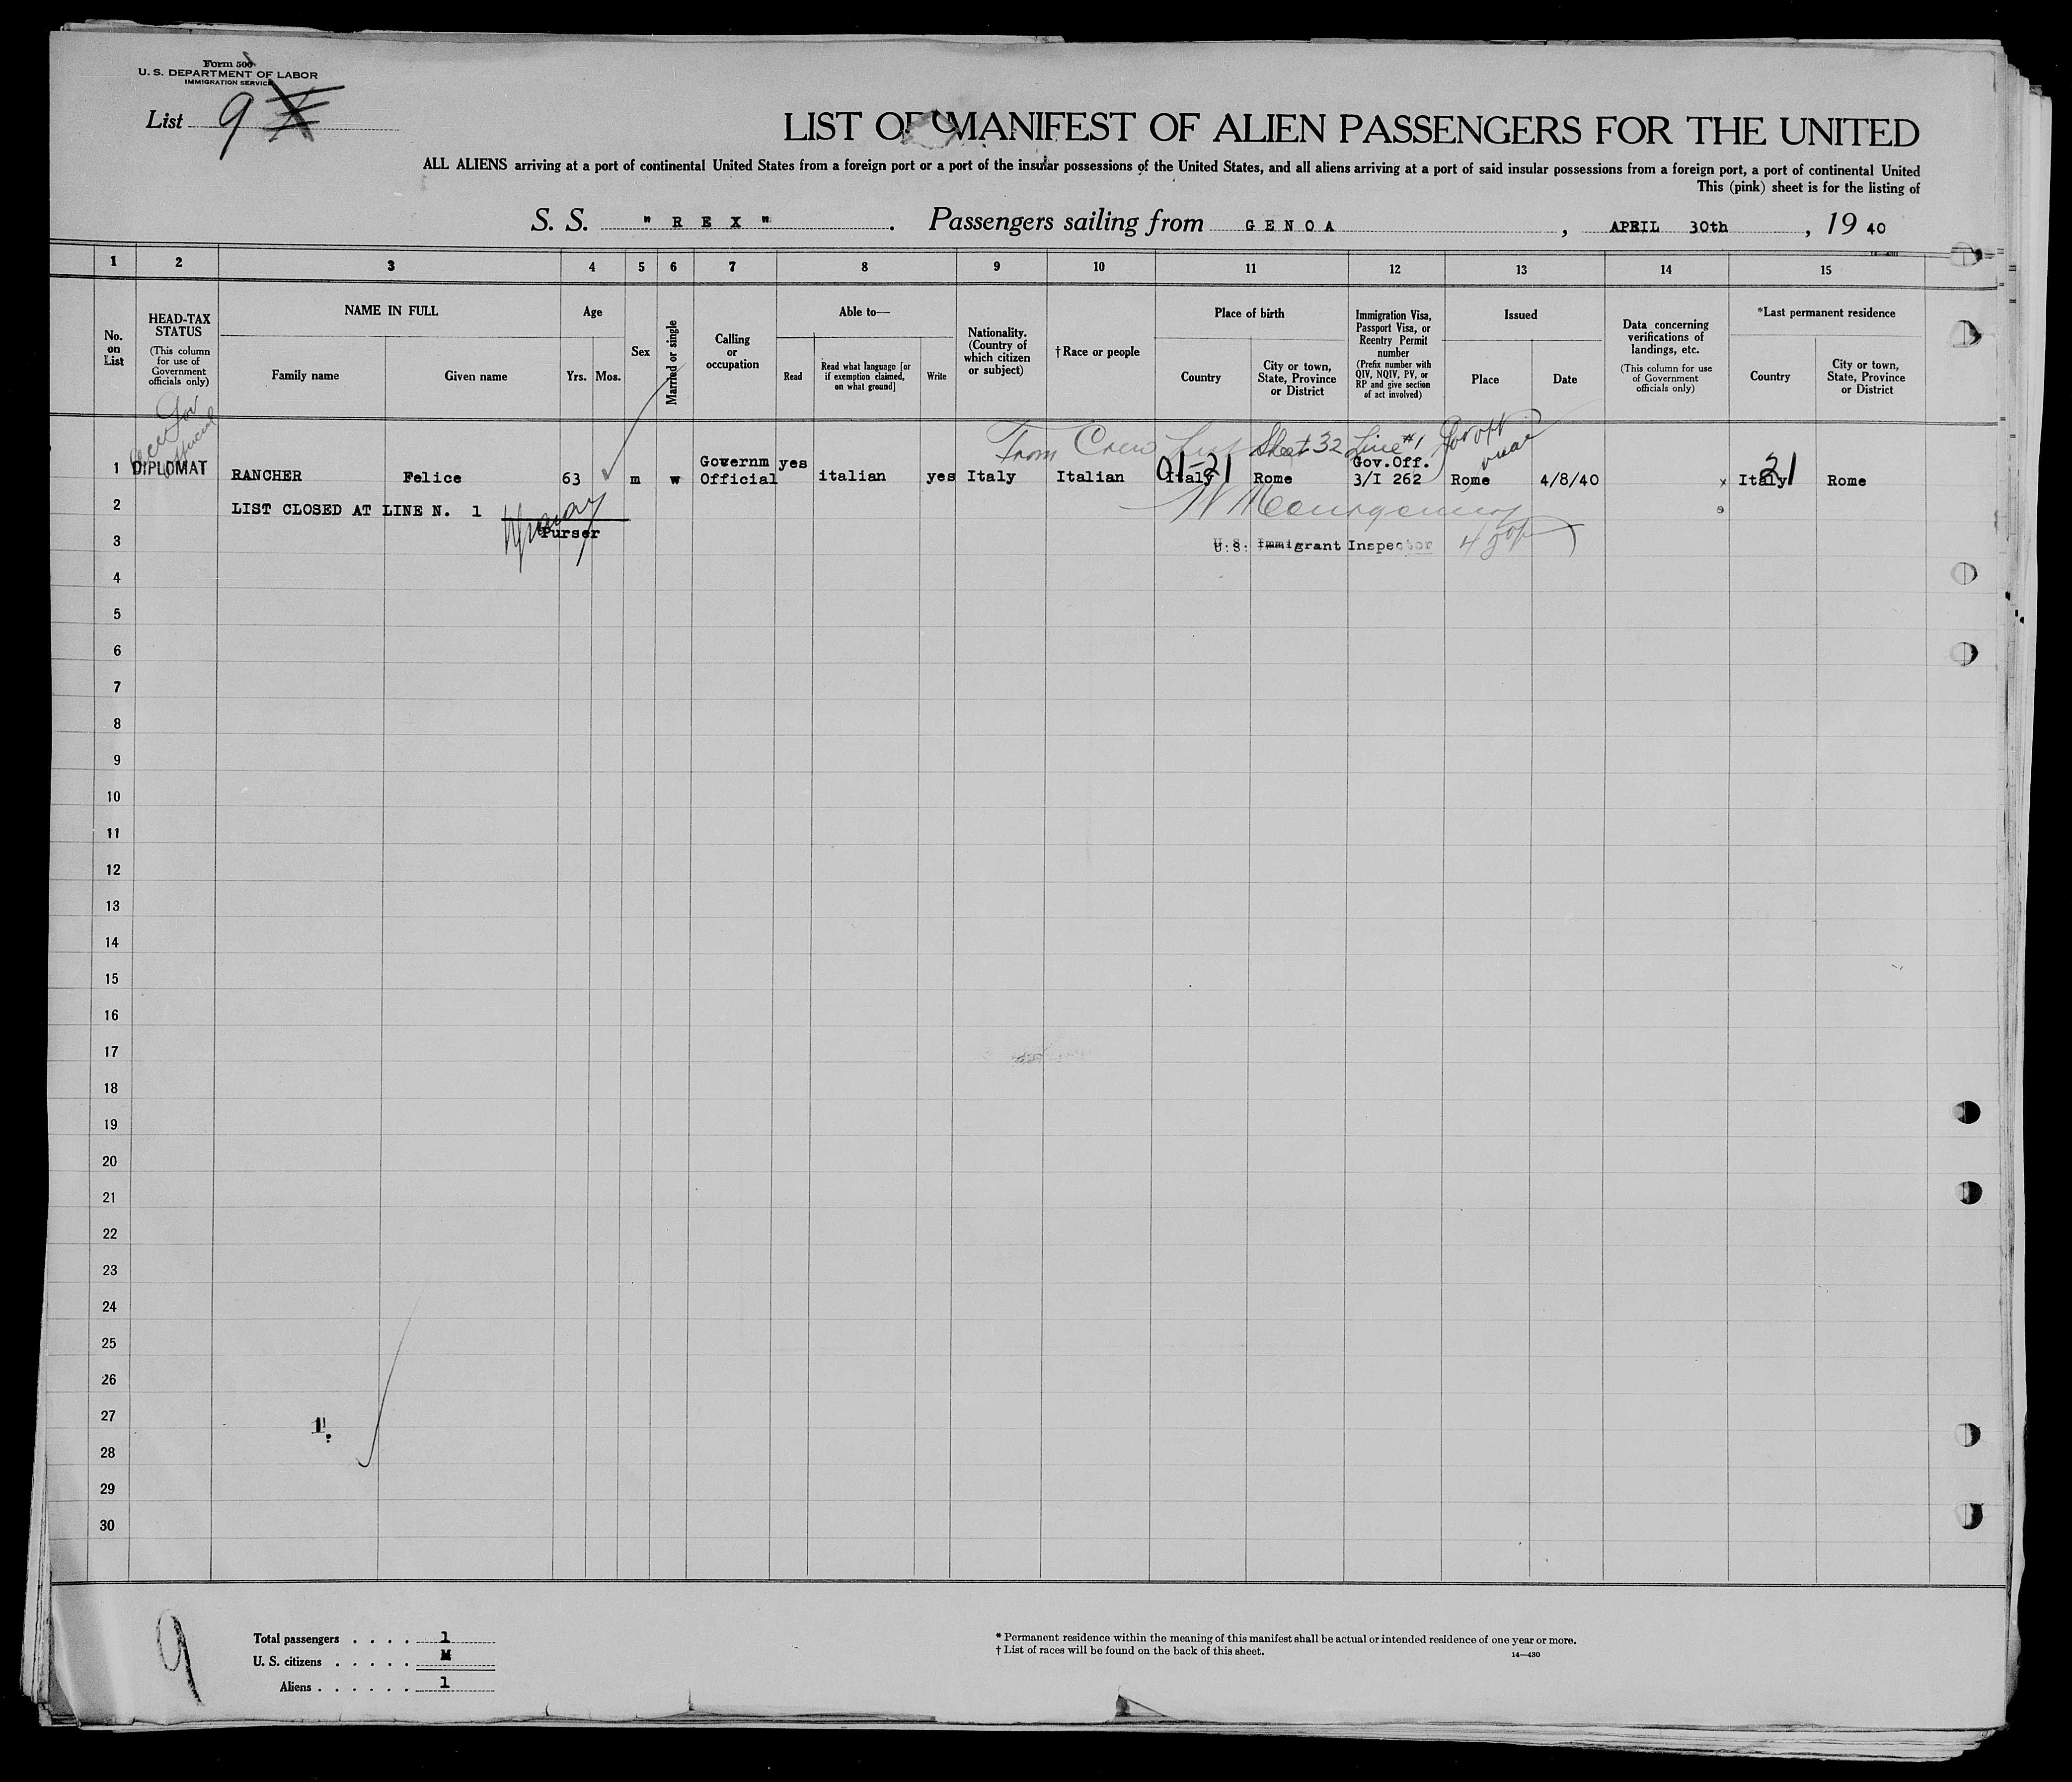 Form 500
U. S. DEPARTMENT OF LABOR
IMMIGRATION SERVICE
List 9
LIST OR MANIFEST OF ALIEN PASSENGERS FOR THE UNITED
ALL ALIENS arriving at a port of continental United States from a foreign port or a port of the insular possessions of the United States, and all aliens arriving at a port of said insular possessions from a foreign port, a port of continental United
This (pink) sheet is for the listing of
S. S. " R E X ". Passengers sailing from G E N O A, APRIL 30th, 19 40
1 2 3 4 5 6 7 8 9 10 11 12 13 14 15
No. on List
HEAD-TAX STATUS
(This column for use of Government officials only)
NAME IN FULL
Family name
Given name
Age
Yrs. Mos.
Sex
Married or single
Calling or occupation
Able to—
Read
Read what language [or if exemption claimed, on what ground]
Write
Nationality. (Country of which citizen or subject)
†Race or people
Place of birth
Country
City or town, State, Province or District
Immigration Visa, Passport Visa, or Reentry Permit number
(Prefix number with QIV, NQIV, PV, or RP and give section of act involved)
Issued
Place
Date
Data concerning verifications of landings, etc.
(This column for use of Government officials only)
*Last permanent residence
Country
City or town, State, Province or District
From Crew List Sheet 32 Line #1
01-21
21
1 DIPLOMAT RANCHER Felice 63 m w Governm Official yes italian yes Italy Italian Italy Rome Gov.Off. 3/I 262 Rome 4/8/40 x Italy Rome
2 LIST CLOSED AT LINE N. 1
Purser
W Montgomery
3
U.S. Immigrant Inspector
4
5
6
7
8
9
10
11
12
13
14
15
16
17
18
19
20
21
22
23
24
25
26
27
1
28
29
30
9
Total passengers . . . . 1
U. S. citizens . . . . .
Aliens . . . . . . 1
* Permanent residence within the meaning of this manifest shall be actual or intended residence of one year or more.
† List of races will be found on the back of this sheet.
14—430